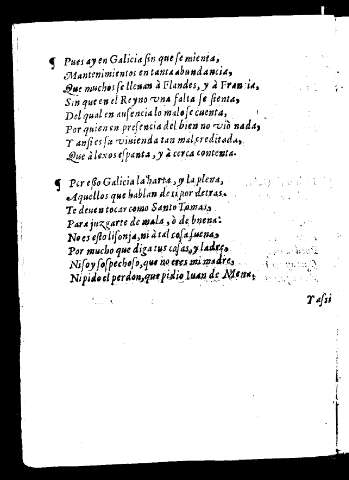 ¶ Pues ay en Galicia sin que se mienta,
Mantenimientos en tanta abundancia,
Que muchos se lleuan à Flandes, y à Francia,
Sin que en el Reyno vna falta se sienta,
Del qual en ausencia lo malo se cuenta,
Por quien en presencia del bien no viò nada,
Y ansi es su viuienda tan malcreditada,
Que à lexos espanta, y à cerca contenta.
¶ Por esso Galicia la harta, y la plena,
Aquellos que hablan de ti por detras.
Te deuen tocar como Santo Tomas,
Para juzgarte de mala, ò de buena.
No es esto lisonja, ni à tal cosa suena,
Por mucho que diga tus cosas, y ladre,
Ni soy sospechoso, que no eres mi madre,
Ni pido el perdon, que pidio Iuan de Mena,
Y assi